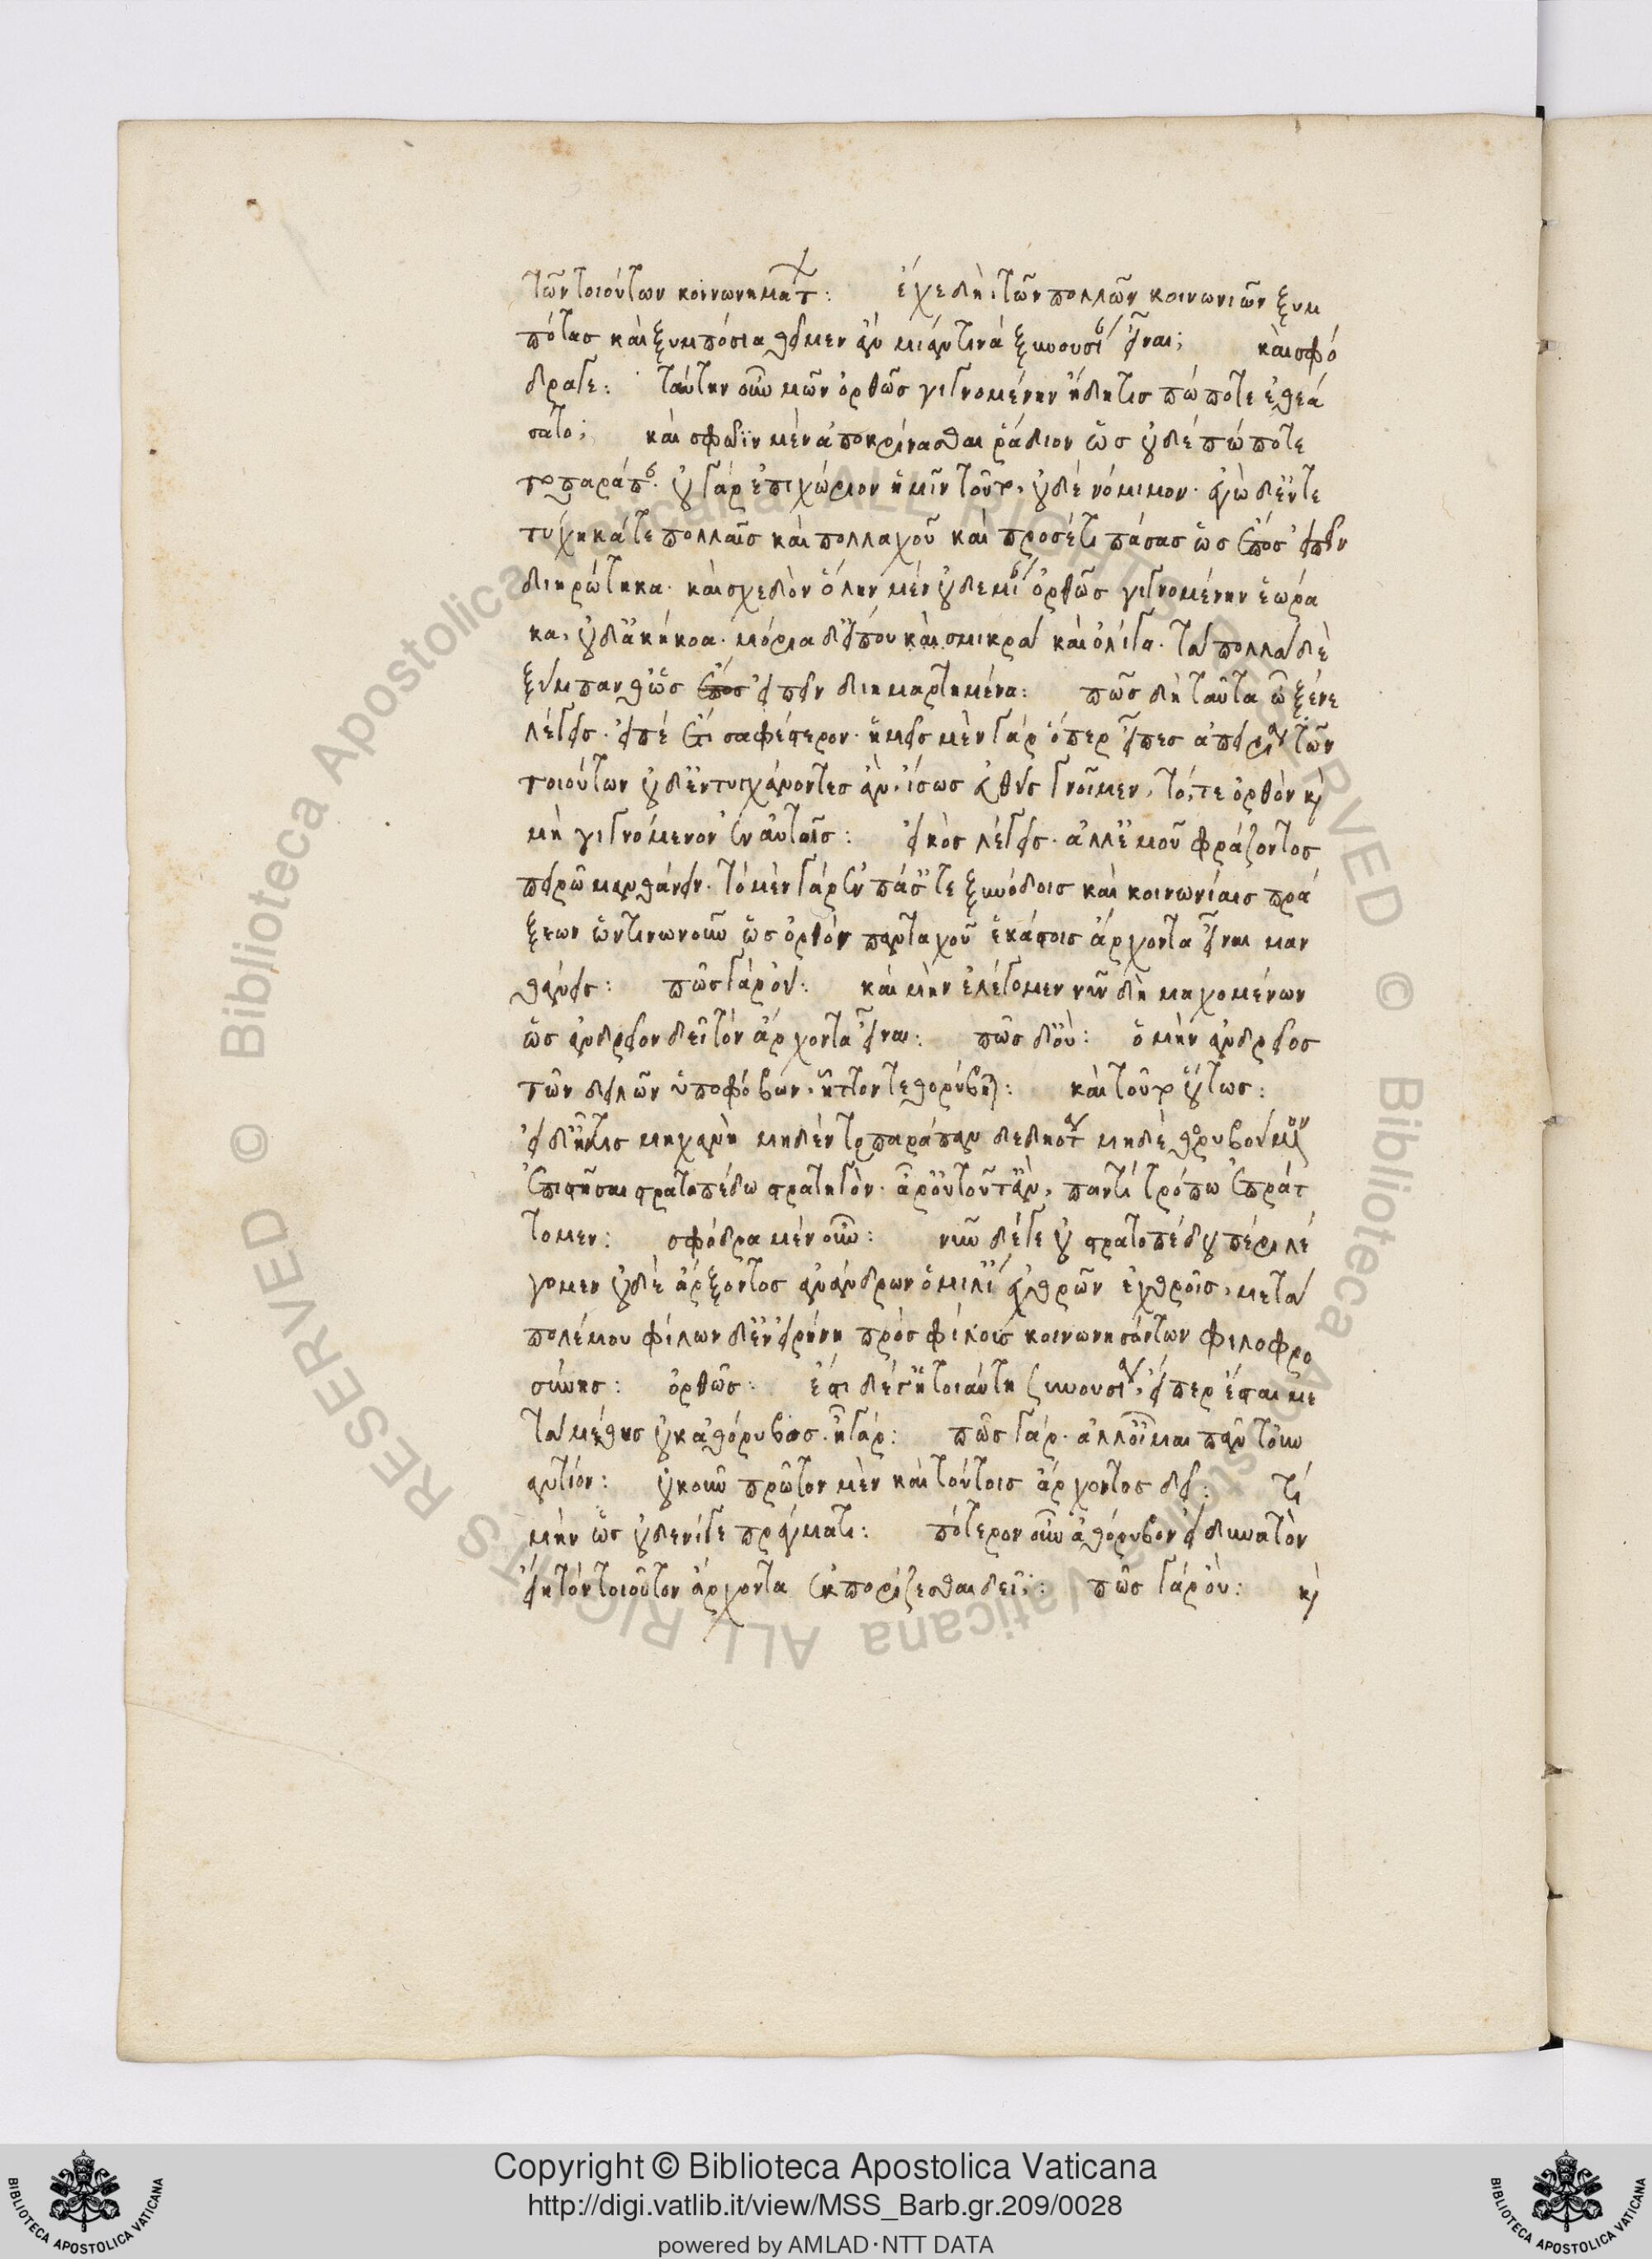 τῶν τοιούτων κοινωνημάτων: ἔχε δή· τῶν πολλῶν κοινωνιῶν ξυμ
πότας καὶ ξυμπόσια θεῖμεν ἂν μίαν τινὰ ξυνουσίαν εἶναι; καὶ σφό
δρα γε: ταύτην οὖν μῶν ὀρθῶς γιγνομένην ἤδη τις πώποτε ἐθεά
σατο; καὶ σφῶϊν μὲν ἀποκρίνασθαι ῥάδιον ὡς οὐδέ πώποτε
το παράπαν· οὐ γὰρ ἐπιχώριον ὑμῖν τοῦτο, οὐδὲ νόμιμον· ἐγὼ δ' ἐντε
τύχηκά τε πολλαῖς καὶ πολλαχοῦ καὶ προσέτι πάσας ὡς ἔπος εἰπεῖν
διηρώτηκα· καὶ σχεδὸν ὅλην μὲν οὐδεμίαν ὀρθῶς γιγνομένην ἑώρα
κα, οὐδ' ἀκήκοα· μόρια δ' εἴπου καὶ σμικρὰ καὶ ὀλίγα· τὰ πολλὰ δὲ
ξύμπανθ' ὡς ἔπος εἰπεῖν διημαρτημένα: πῶς δὴ ταῦτα ὦ ξένε
λέγεις· εἰπέ ἔτι σαφέστερον· ἡμεῖς μὲν γάρ ὅπερ εἶπες ἀπειρίαν τῶν
τοιούτων οὐδ' ἐντυγχάνοντες ἄν, ἴσως εὐθύς γνοῖμεν, τό, τε ὀρθὸν καὶ
μὴ γιγνόμενον ἐν αὐτοῖς: εἰκὸς λέγεις· ἀλλ' ἐμοῦ φράζοντος
πειρῶ μανθάνειν· τὸ μὲν γὰρ ἐν πάσαις τε ξυνόδοις καὶ κοινωνίαις πρά
ξεων ὧντινωνοῦν ὡς ὀρθὸν πανταχοῦ ἑκάστοις ἄρχοντα εἶναι μαν
θάνεις: πῶς γὰρ οὔ: καὶ μὴν ἐλέγομεν νῦν δὴ μαχομένων
ὡς ἀνδρεῖον δεῖ τὸν ἄρχοντα εἶναι: πῶς δ' οὔ: ὁ μὴν ἀνδρεῖος
τῶν δειλῶν ὑπο φόβων, ἧττον τεθορύβηται: καὶ τοῦτο οὕτως:
εἰ δ' ἦν τις μηχανὴ μηδὲν το παράπαν δεδιότα μηδὲ θορυβούμενον
ἐπιστῆσαι στρατοπέδω στρατηγὸν· ἆρ' οὐ τοῦτ' ἂν, παντὶ τρόπω ἐπράτ
τομεν: σφόδρα μὲν οὖν: νῦν δέ γε οὐ στρατοπέδου πέρι λέ
γομεν οὐδὲ ἄρξοντος ἀνάνδρων ὁμιλίαις ἐχθρῶν ἐχθροῖς, μετὰ
πολέμου φίλων δ' ἐν εἰρήνη πρὸς φίλους κοινωνησόντων φιλοφρο
σύνης: ὀρθῶς: ἔστι δέ γ' ἡ τοιαύτη ξυνουσία, εἴπερ ἔσται με
τὰ μέθης οὐκ ἀθόρυβος. ἦ γάρ: πῶς γάρ· ἀλλ' οἶμαι πᾶν τοὐν
αντίον: οὐκοῦν πρῶτον μὲν καὶ τούτοις ἄρχοντος δεῖ: τί
μὴν ὡς οὐδενί γε πράγματι: πότερον οὖν ἀθόρυβον εἰ δυνατὸν
εἴη τὸν τοιοῦτον ἄρχοντα ἐκπορίζεσθαι δεῖ: πῶς γὰρ οὔ: καὶ
Copyright © Biblioteca Apostolica Vaticana
http://digi.vatlib.it/view/MSS_Barb.gr.209/0028
powered by AMLAD·NTT DATA
© Biblioteca Apostolica Vaticana ALL RIGHTS RESERVED © Biblioteca Apostolica Vaticana ALL RIGHTS RESERVED
BIBLIOTECA APOSTOLICA VATICANA
BIBLIOTECA APOSTOLICA VATICANA